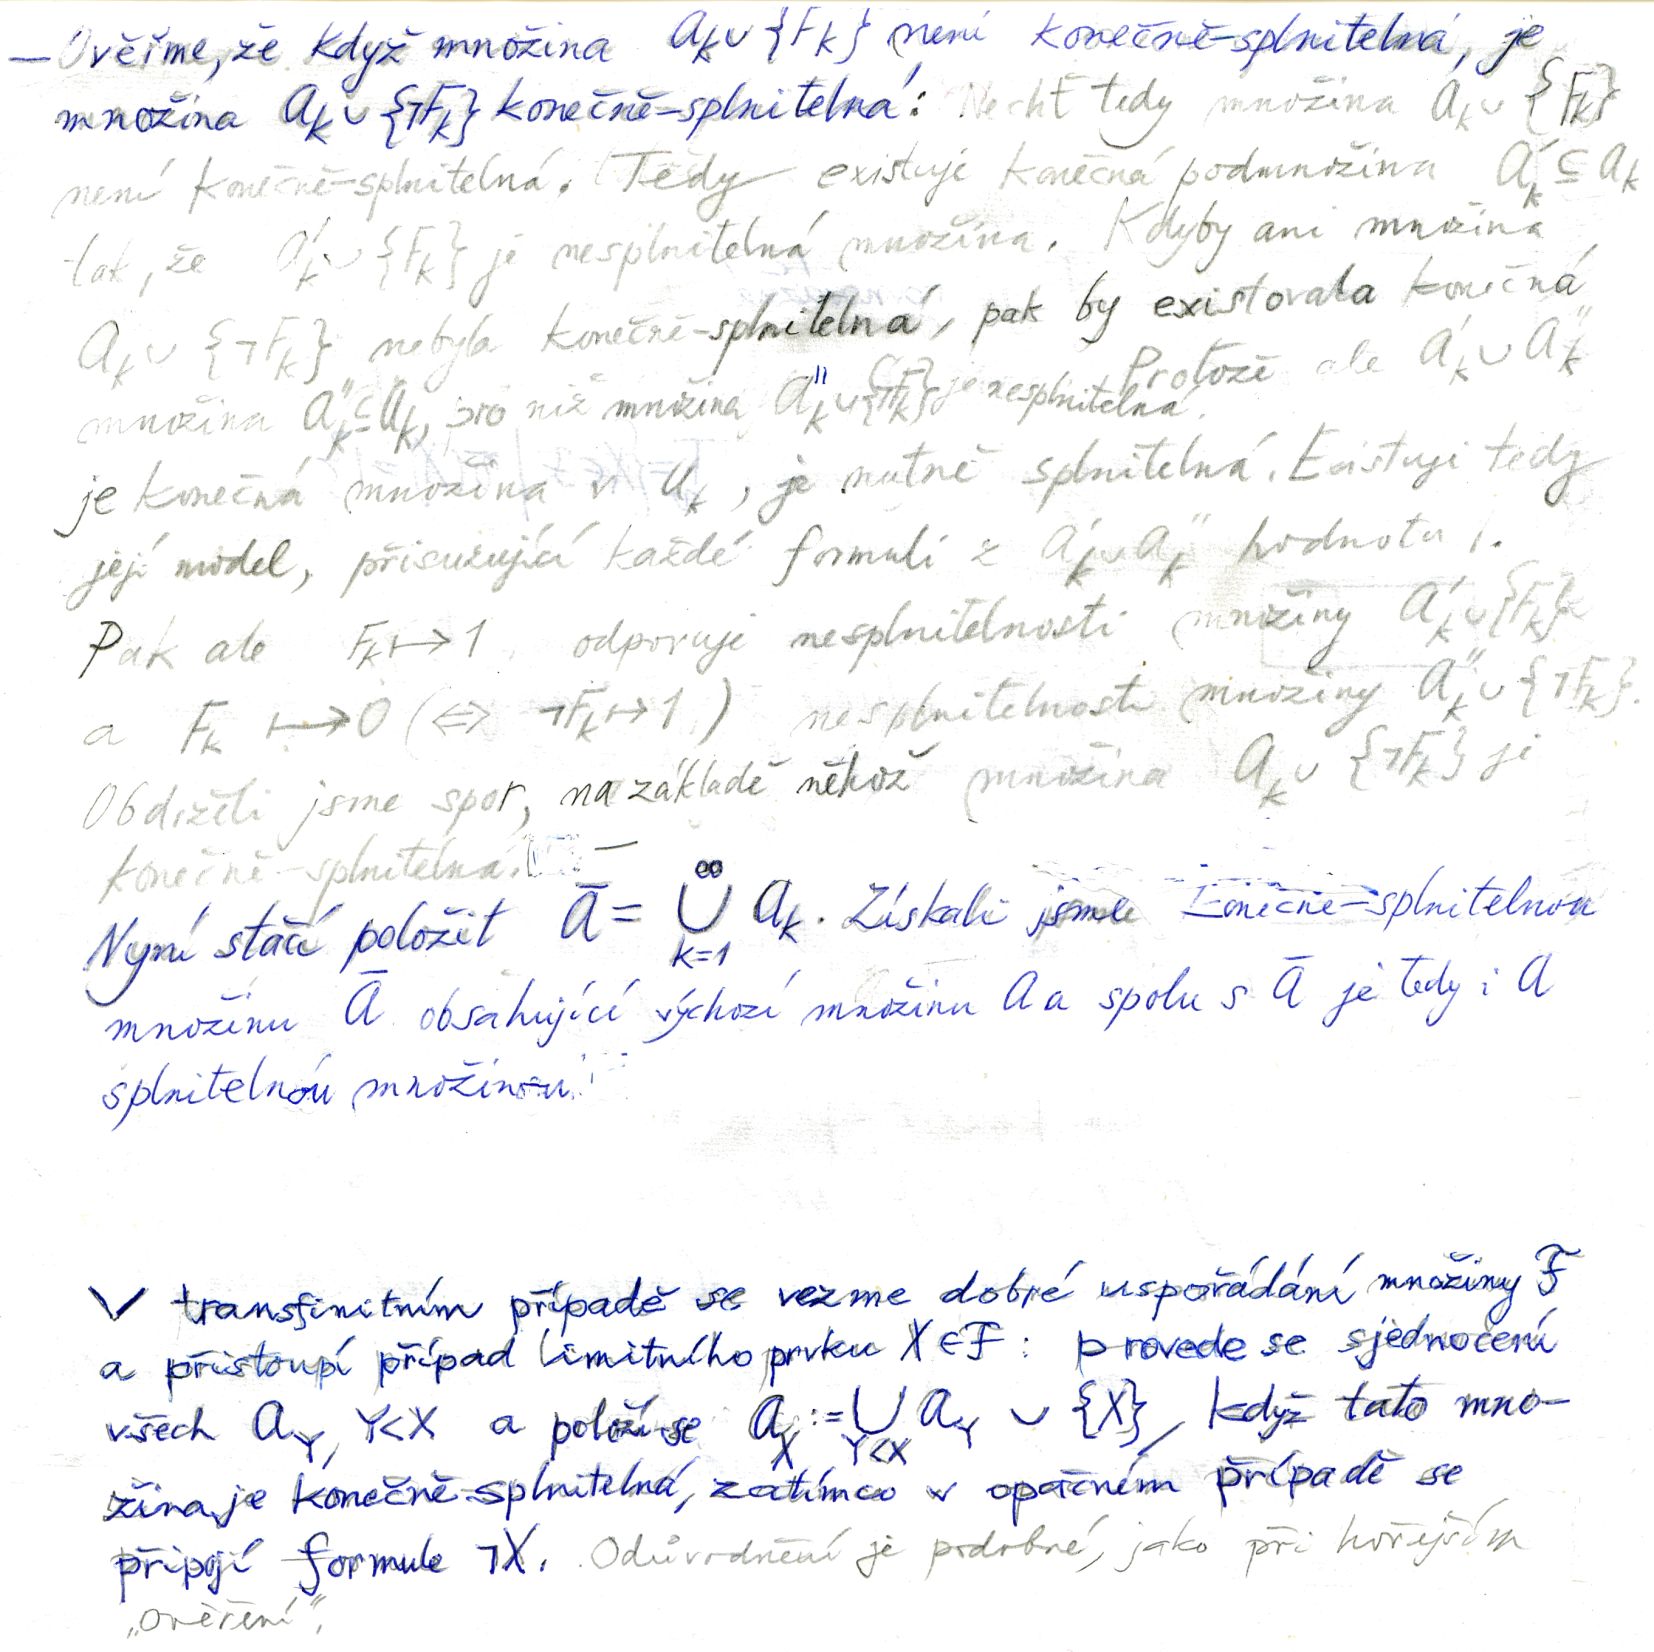 — Ověřme, že když množina 𝒜ₖ∪{Fₖ} není konečně-splnitelná, je
množina 𝒜ₖ∪{¬Fₖ} konečně-splnitelná: Nechť tedy množina 𝒜ₖ∪{Fₖ}
není konečně-splnitelná. Tedy existuje konečná podmnožina 𝒜ₖ' ⊆ 𝒜ₖ
tak, že 𝒜ₖ'∪{Fₖ} je nesplnitelná množina. Kdyby ani množina
𝒜ₖ∪{¬Fₖ} nebyla konečně-splnitelná, pak by existovala konečná
množina 𝒜ₖ''⊆𝒜ₖ, pro niž množina 𝒜ₖ''∪{¬Fₖ} je nesplnitelná. Protože ale 𝒜ₖ'∪𝒜ₖ''
je konečná množina v 𝒜ₖ, je nutně splnitelná. Existuje tedy
její model, přisuzující každé formuli z 𝒜ₖ'∪𝒜ₖ'' hodnotu 1.
Pak ale Fₖ↦1 odporuje nesplnitelnosti množiny 𝒜ₖ'∪{Fₖ}
a Fₖ ↦ 0 (⇔ ¬Fₖ↦1) nesplnitelnosti množiny 𝒜ₖ''∪{¬Fₖ}.
Obdrželi jsme spor, na základě něhož množina 𝒜ₖ∪{¬Fₖ} je
konečně-splnitelná. —
Nyní stačí položit 𝒜̄ = ⋃_{k=1}^{∞} 𝒜ₖ. Získali jsme konečně-splnitelnou
množinu 𝒜̄ obsahující výchozí množinu 𝒜 a spolu s 𝒜̄ je tedy i 𝒜
splnitelnou množinou.
V transfinitním případě se vezme dobré uspořádání množiny ℱ
a přistoupí případ limitního prvku X∈ℱ: provede se sjednocení
všech 𝒜_Y, Y<X a položí se 𝒜_X := ⋃_{Y<X} 𝒜_Y ∪ {X}, když tato mno-
žina je konečně-splnitelná, zatímco v opačném případě se
připojí formule ¬X. Odůvodnění je podobné, jako při hořejším
„ověření“.